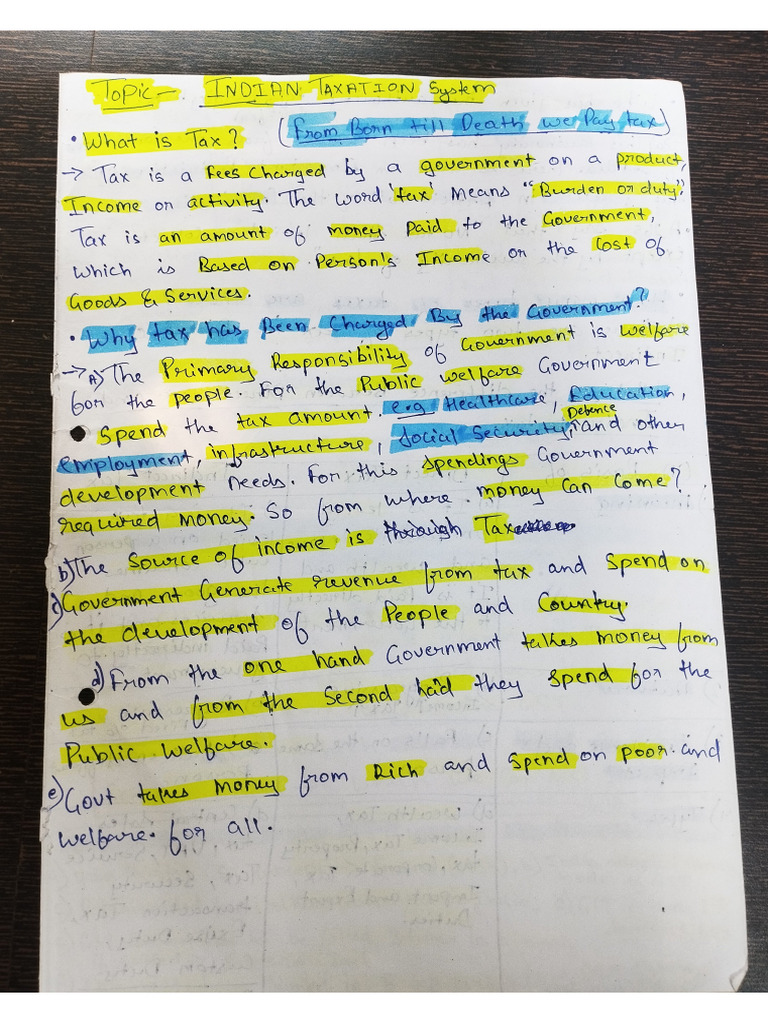 Topic - INDIAN TAXATION System
• What is Tax? (From Born till Death we Pay tax)
→ Tax is a Fees Charged by a government on a product,
Income or activity. The word 'tax' means "Burden or duty".
Tax is an amount of money paid to the Government,
which is Based on Person's Income or the Cost of
Goods & Services.
• Why tax has Been Charged By the Government?
→ A) The Primary Responsibility of Government is welfare
for the people. For the Public welfare Government
Spend the tax amount. e.g Healthcare, Education,
Employment, infrastructure, Social Security, Defence and other
development needs. For this spendings Government
required money. So from where money can come?
b) The Source of income is through Tax
c) Government Generate revenue from tax and Spend on
the development of the People and Country.
d) From the one hand Government takes money from
us and from the Second had they spend for the
Public welfare.
e) Govt takes money from Rich and Spend on poor and
welfare for all.